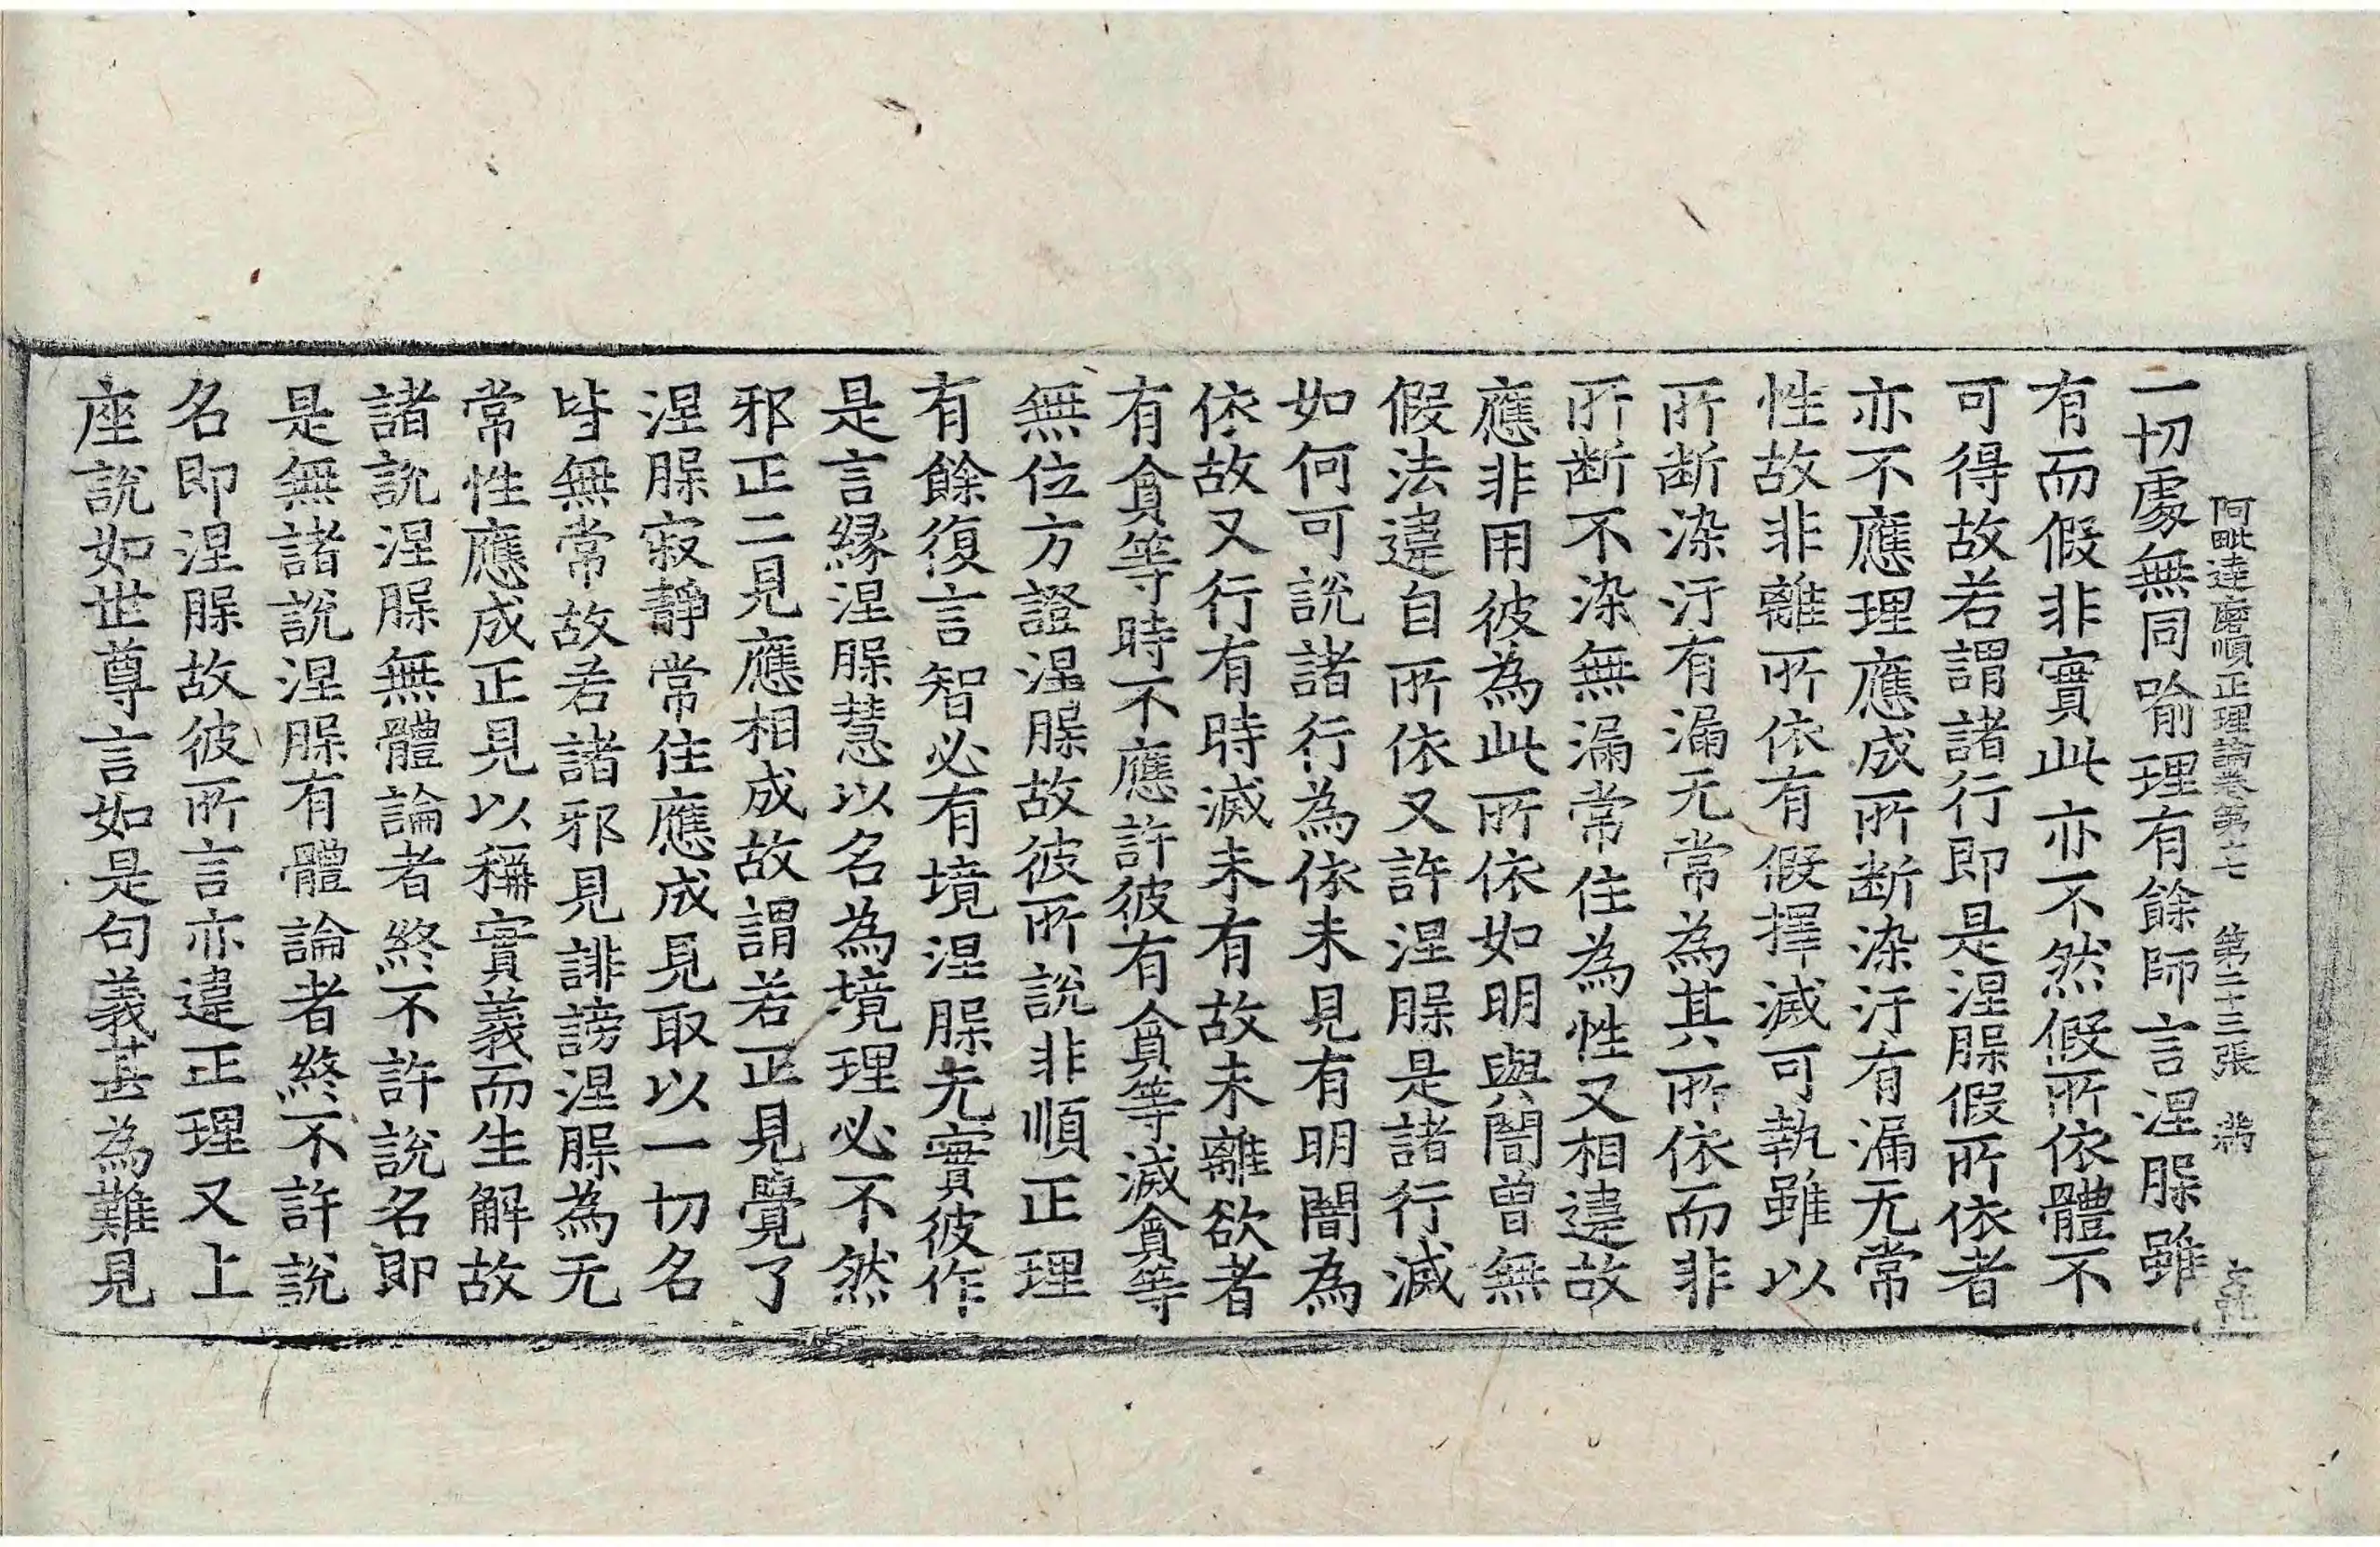 阿毗達磨順正理論卷第十七　第二十三張　滿
一切處無同喻理有餘師言涅槃雖
有而假非實此亦不然假所依體不
可得故若謂諸行即是涅槃假所依者
亦不應理應成所斷染汙有漏无常
性故非離所依有假擇滅可執雖以
所斷染汙有漏无常為其所依而非
所斷不染無漏常住為性又相違故
應非用彼為此所依如明與闇曾無
假法違自所依又許涅槃是諸行滅
如何可說諸行為依未見有明闇為
依故又行有時滅未有故未離欲者
有貪等時不應許彼有貪等滅貪等
無位方證涅槃故彼所說非順正理
有餘復言智必有境涅槃无實彼作
是言緣涅槃慧以名為境理必不然
邪正二見應相成故謂若正見覺了
涅槃寂靜常住應成見取以一切名
皆無常故若諸邪見誹謗涅槃為无
常性應成正見以稱實義而生解故
諸說涅槃無體論者終不許說名即
是無諸說涅槃有體論者終不許說
名即涅槃故彼所言亦違正理又上
座說如世尊言如是句義甚為難見